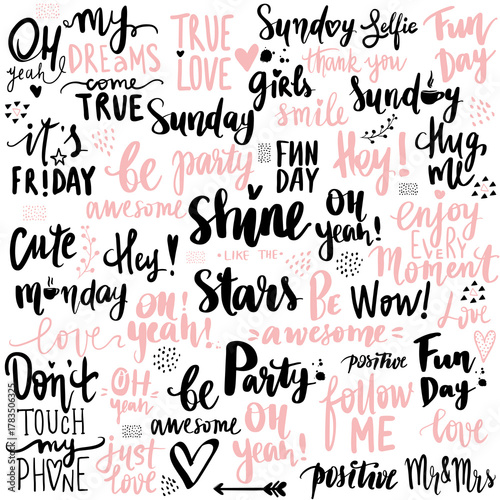 OH
yeah!
my
DREAMS
come
TRUE
TRUE
LOVE
Sunday Selfie
thank you
Fun
Day
girls
Sunday
smile
Sunday
it's
FRIDAY
be party
FUN
DAY
Hey!
Hug
me
awesome
Shine
LIKE THE
Stars
OH
yeah!
enjoy
EVERY
Moment
Cute
monday
Hey!
OH!
yeah!
BE
Wow!
Love
love
awesome
Don't
TOUCH
my
PHONE
OH
yeah
be
awesome
Party
positive
Fun
Day
follow
ME
love
Just
love
OH
yeah!
positive
Mr&Mrs
Adobe Stock | #1783506325